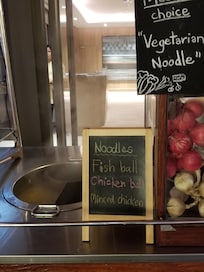 choice
"Vegetarian
Noodle"
Noodles
Fish ball
Chicken ball
Minced chicken